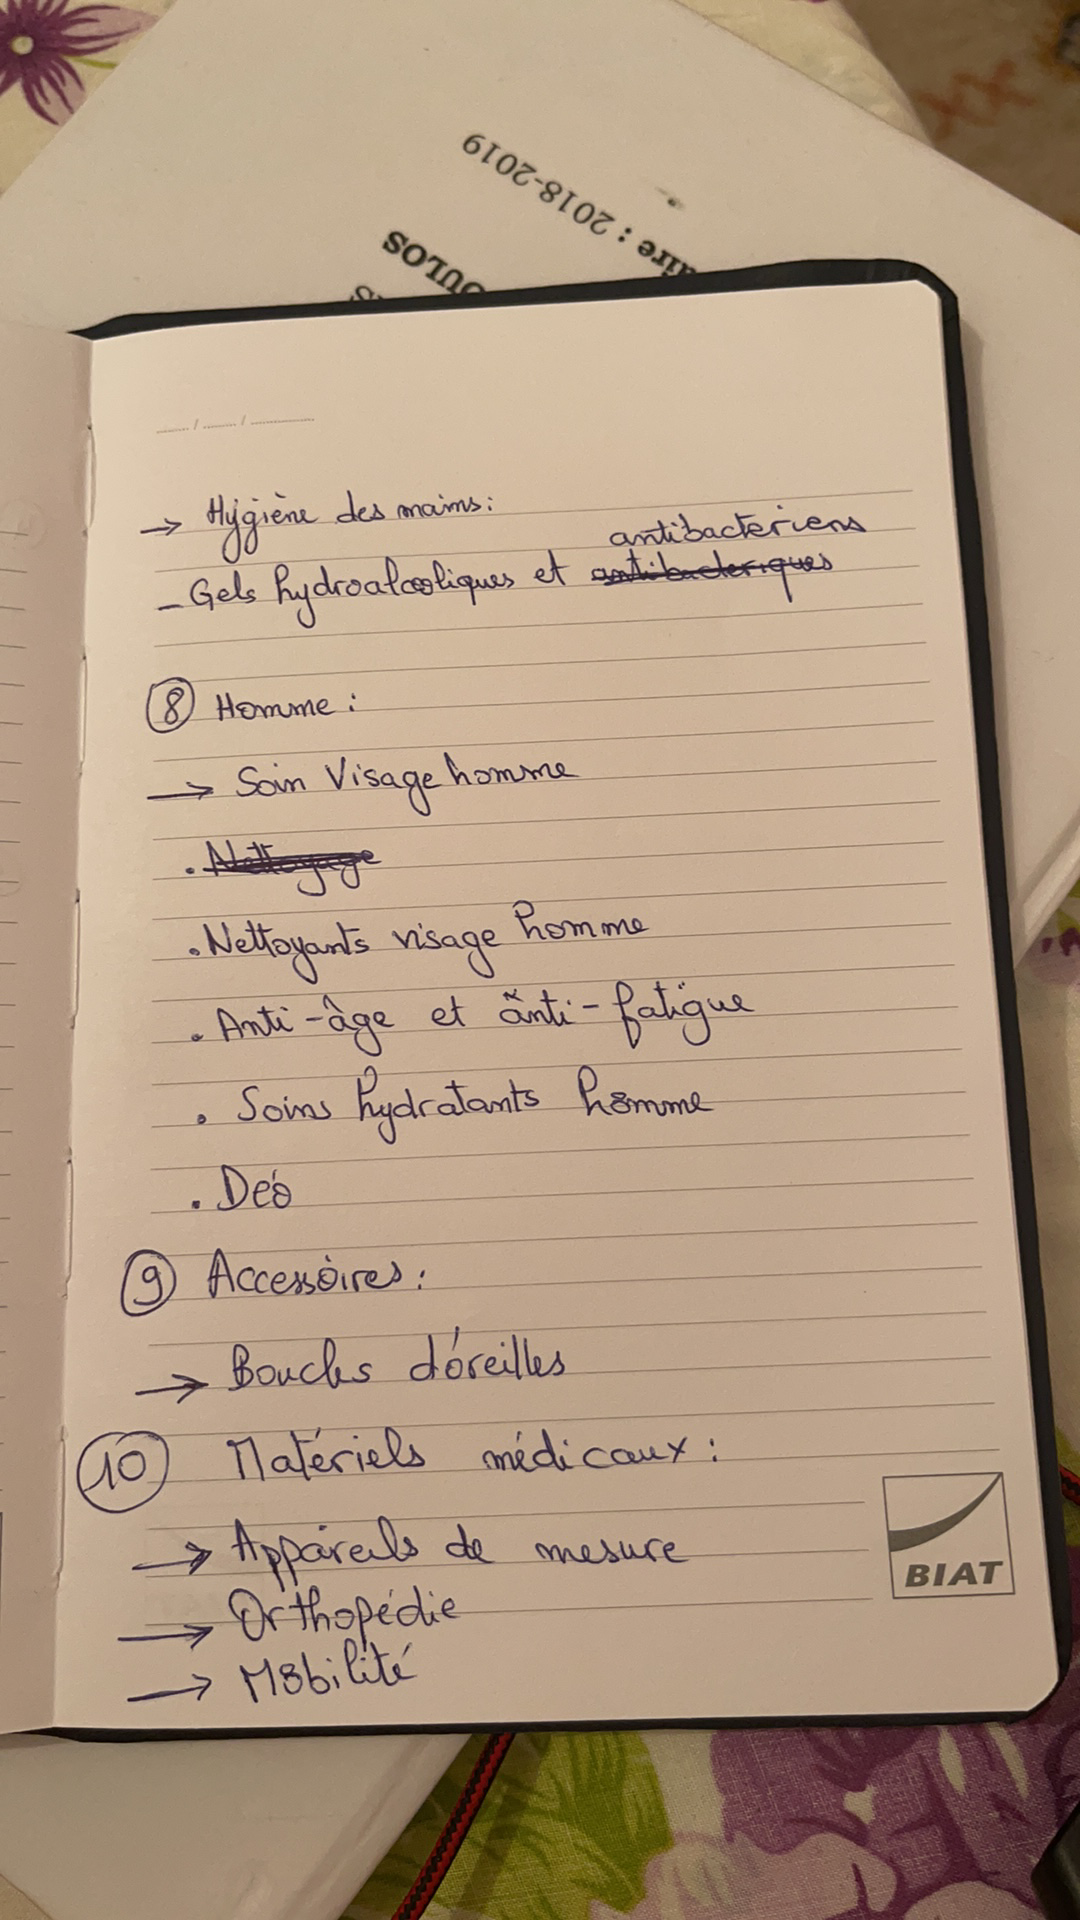 aire : 2018-2019
OULOS
→ Hygiène des mains:
antibactériens
- Gels hydroalcooliques et antibacteriques
⑧ Homme :
→ Soin Visage homme
. Nettoyage
. Nettoyants visage homme
. Anti-âge et anti-fatigue
. Soins hydratants homme
. Déo
⑨ Accessoires :
→ Boucles d'oreilles
⑩ Matériels médicaux :
→ Appareils de mesure
→ Orthopédie
→ Mobilité
BIAT